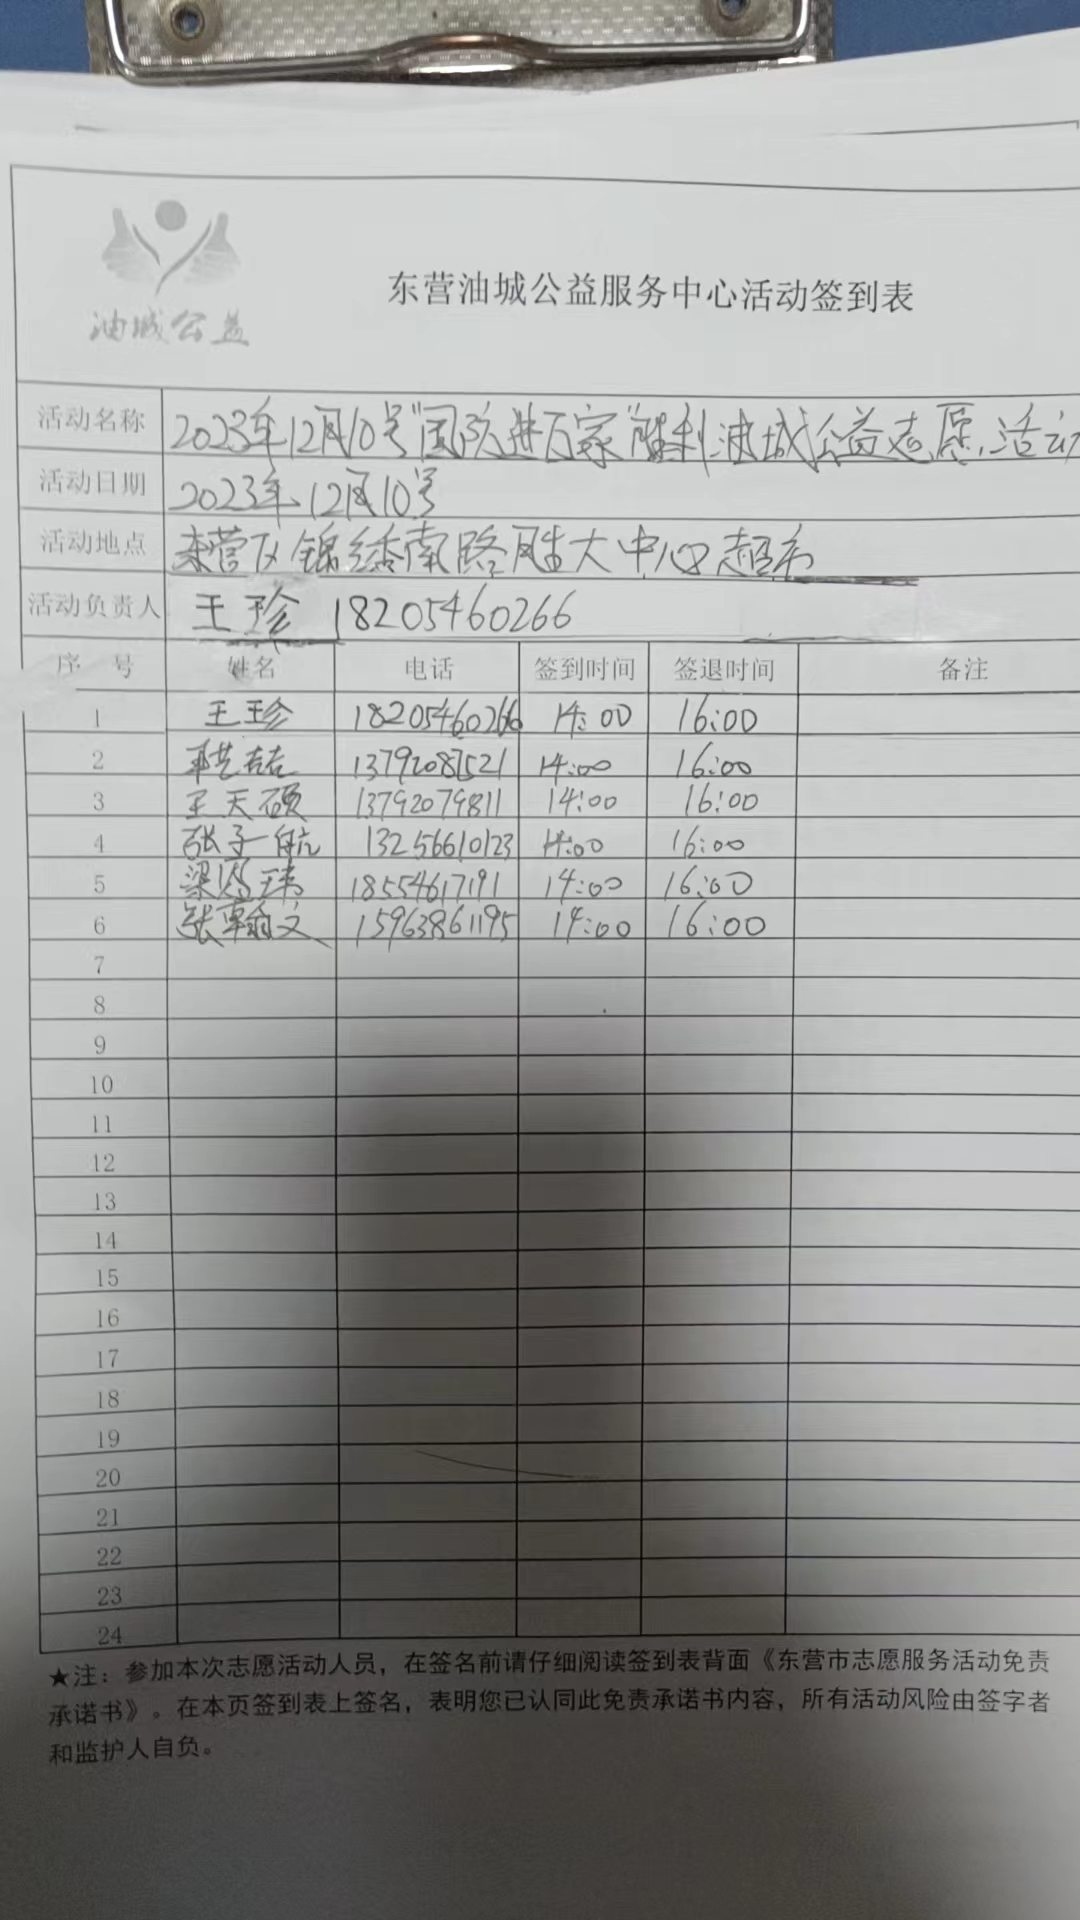 油城公益
东营油城公益服务中心活动签到表
活动名称 2023年12月10号"国防进万家"胜利油城公益志愿活动
活动日期 2023年12月10号
活动地点 东营区锦绣南路胜大中心超市
活动负责人 王珍 18205460266
序 号 姓名 电话 签到时间 签退时间 备注
1 王珍 18205460266 14:00 16:00
2 13792087521 14:00 16:00
3 王天硕 13792079811 14:00 16:00
4 张子航 13256610123 14:00 16:00
5 梁鸿玮 18554617191 14:00 16:00
6 张翰文 15963861195 14:00 16:00
7
8
9
10
11
12
13
14
15
16
17
18
19
20
21
22
23
24
★注：参加本次志愿活动人员，在签名前请仔细阅读签到表背面《东营市志愿服务活动免责
承诺书》。在本页签到表上签名，表明您已认同此免责承诺书内容，所有活动风险由签字者
和监护人自负。